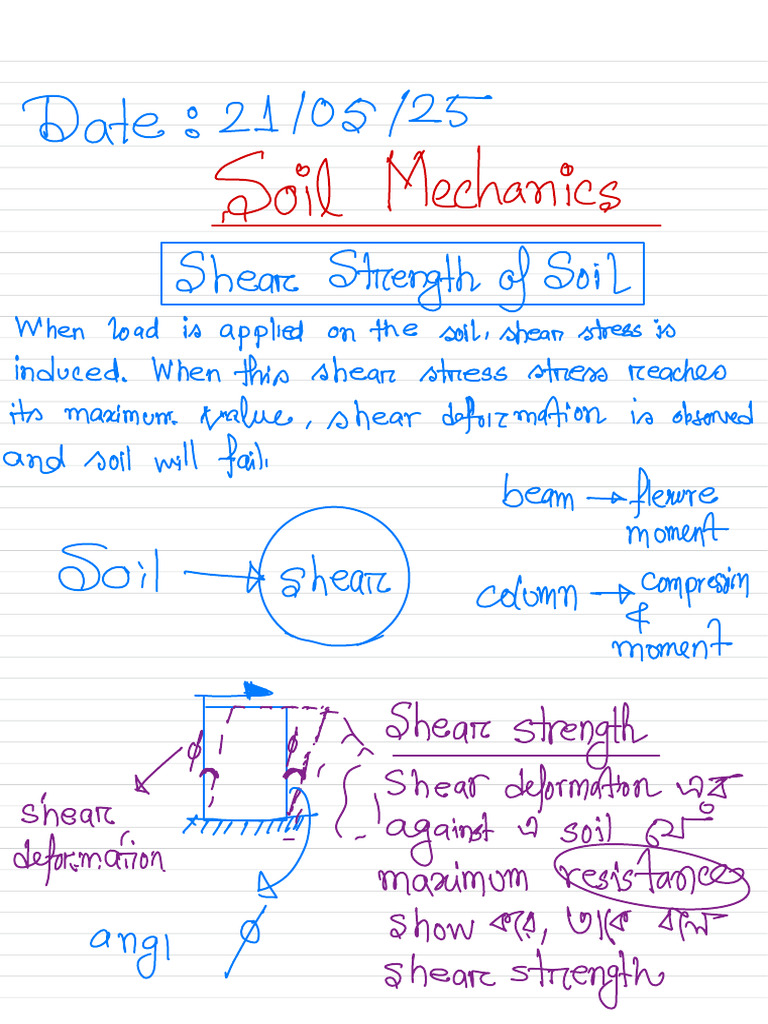 Date: 21/05/25
Soil Mechanics
Shear Strength of Soil
When load is applied on the soil, shear stress is
induced. When this shear stress stress reaches
its maximum value, shear deformation is observed
and soil will fail.
beam → flexure
moment
Soil → shear
column → compression
&
moment
Shear strength
φ φ
shear
deformation
Shear deformation এর
against এ soil যে
maximum resistance
show করে, তাকে বলে
shear strength
angl
φ